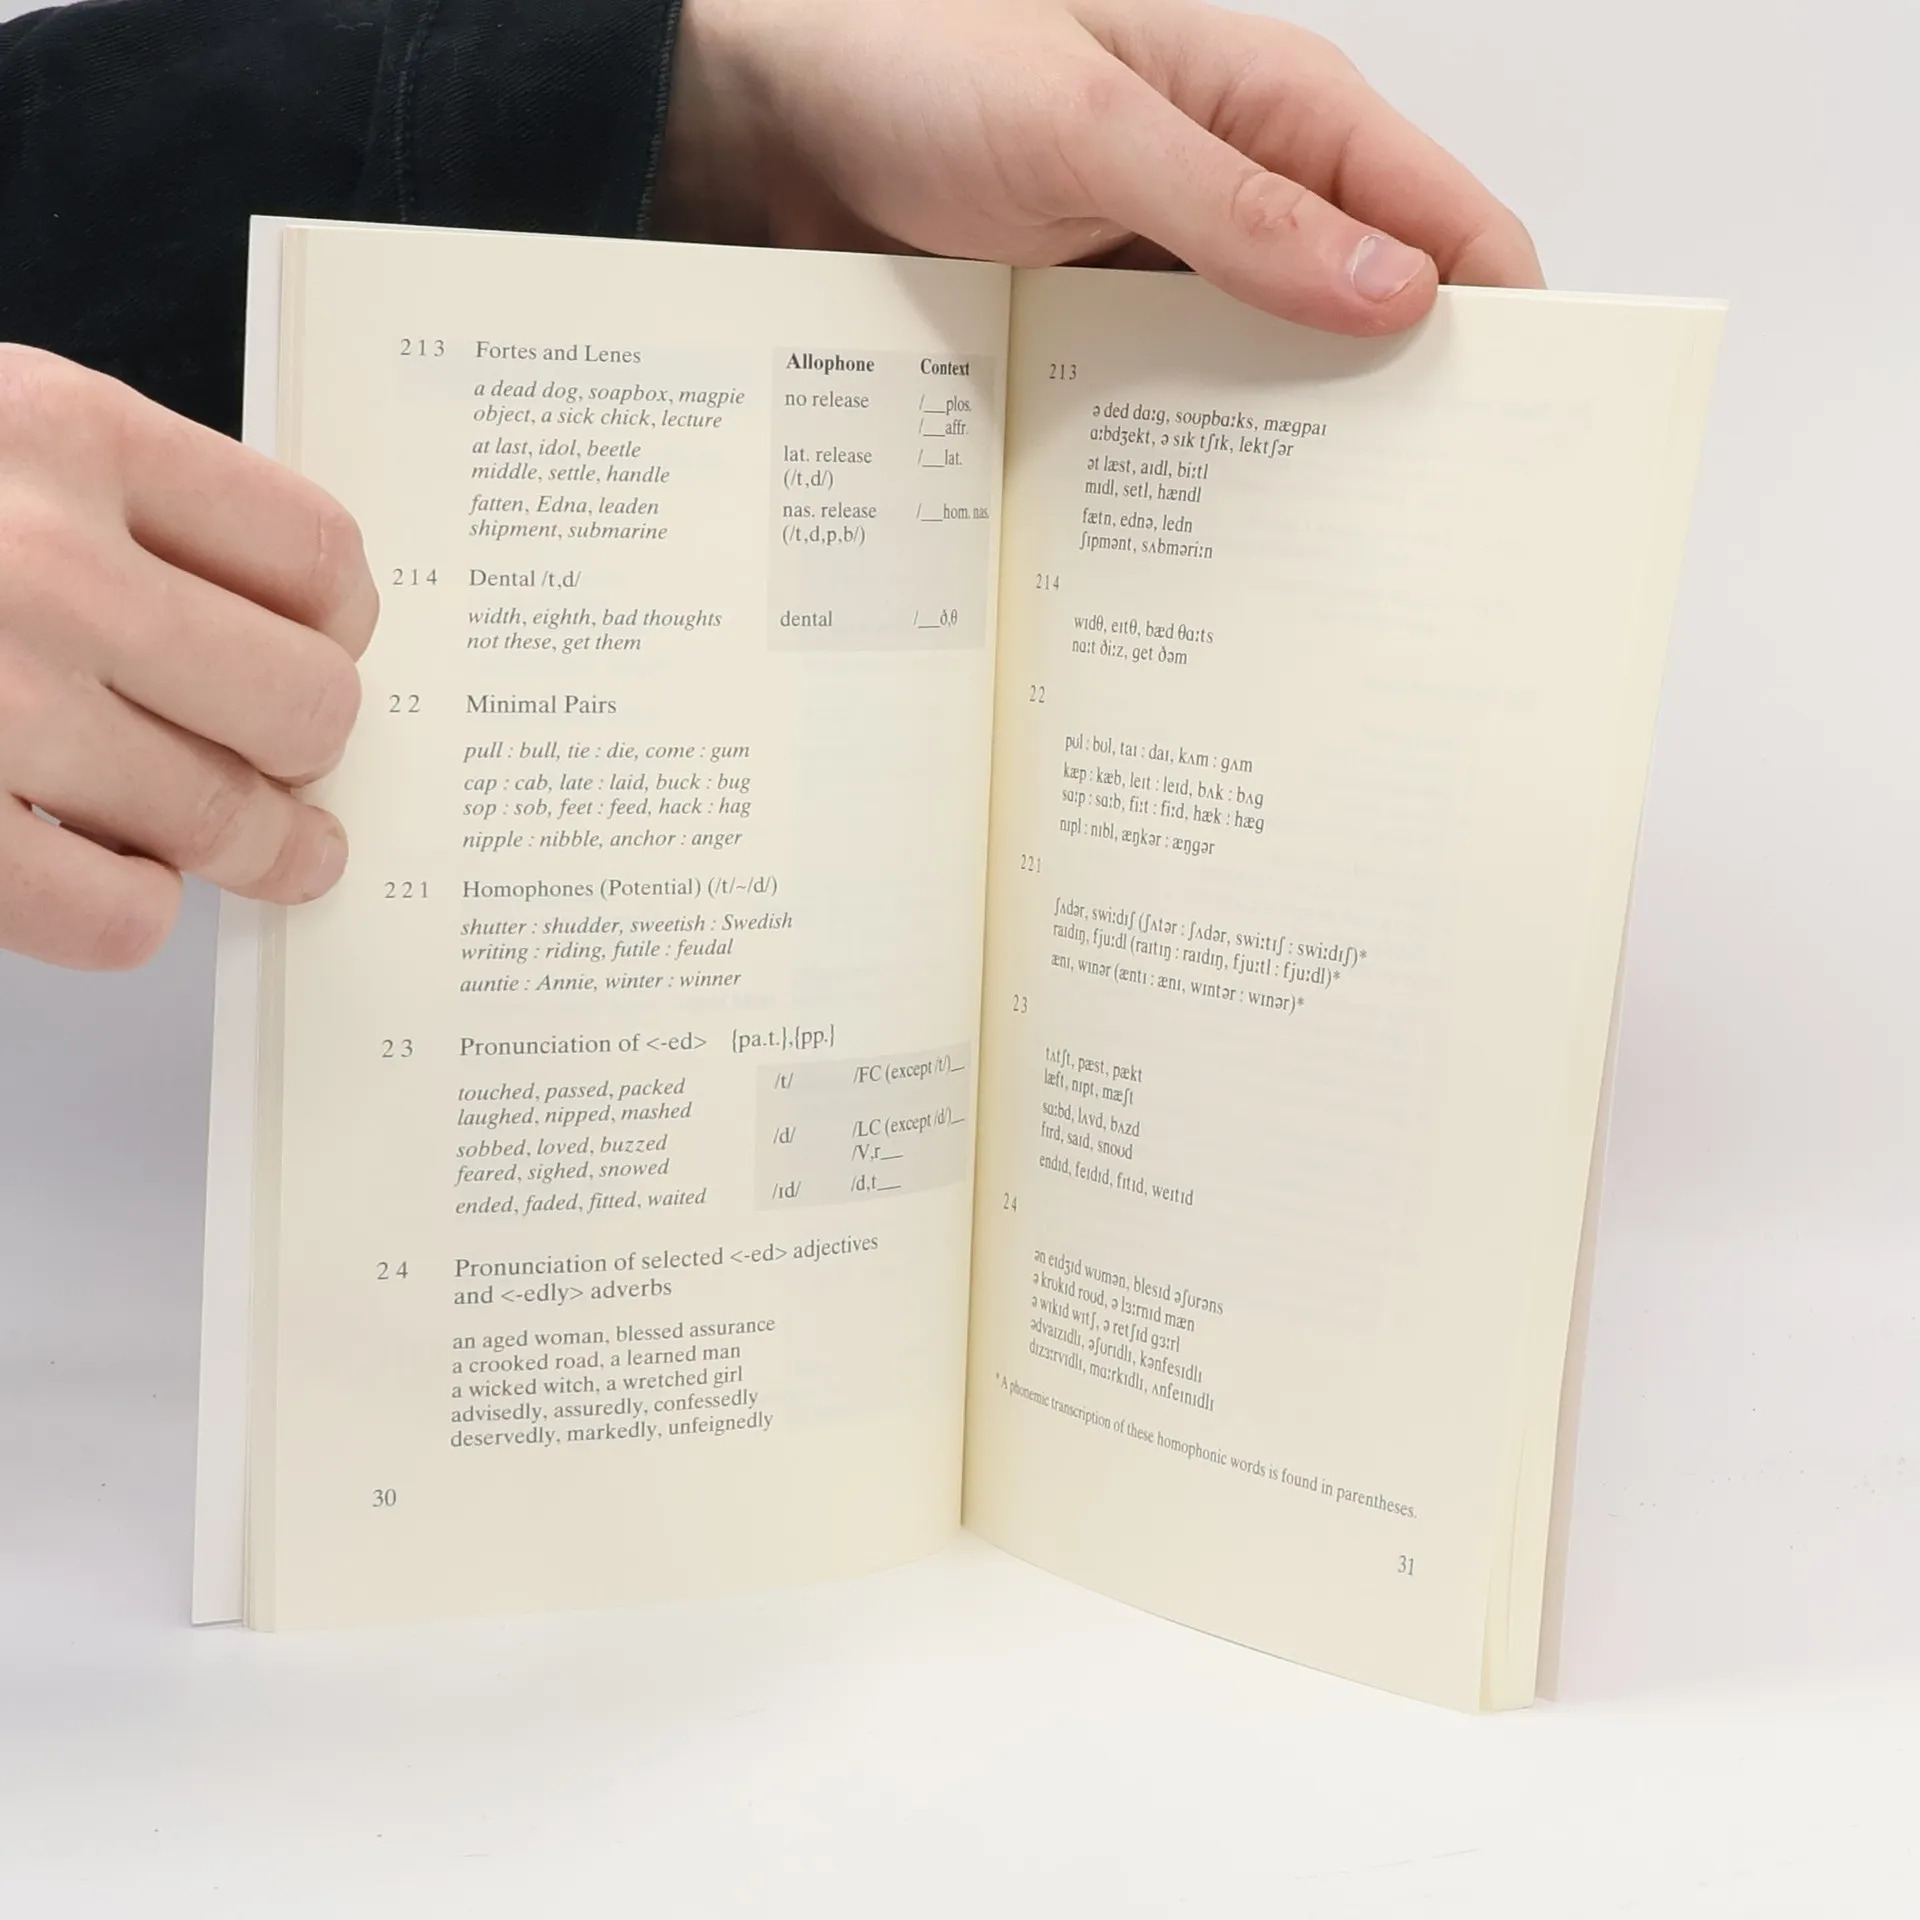 213 Fortes and Lenes
Allophone Context
a dead dog, soapbox, magpie no release /__plos.
object, a sick chick, lecture /__affr.
at last, idol, beetle lat. release /__lat.
middle, settle, handle (/t,d/)
fatten, Edna, leaden nas. release /__hom. nas.
shipment, submarine (/t,d,p,b/)
214 Dental /t,d/
width, eighth, bad thoughts dental /__ð,θ
not these, get them
22 Minimal Pairs
pull : bull, tie : die, come : gum
cap : cab, late : laid, buck : bug
sop : sob, feet : feed, hack : hag
nipple : nibble, anchor : anger
221 Homophones (Potential) (/t/~/d/)
shutter : shudder, sweetish : Swedish
writing : riding, futile : feudal
auntie : Annie, winter : winner
23 Pronunciation of <-ed> {pa.t.},{pp.}
touched, passed, packed /t/ /FC (except /t/)__
laughed, nipped, mashed
sobbed, loved, buzzed /d/ /LC (except /d/)__
feared, sighed, snowed /V,r__
ended, faded, fitted, waited /ɪd/ /d,t__
24 Pronunciation of selected <-ed> adjectives
and <-edly> adverbs
an aged woman, blessed assurance
a crooked road, a learned man
a wicked witch, a wretched girl
advisedly, assuredly, confessedly
deservedly, markedly, unfeignedly
30
213
ə ded dɑːg, soʊpbɑːks, mægpaɪ
ɑːbdʒekt, ə sɪk tʃɪk, lektʃər
ət læst, aɪdl, biːtl
mɪdl, setl, hændl
fætn, ednə, ledn
ʃɪpmənt, sʌbməriːn
214
wɪdθ, eɪtθ, bæd θɑːts
nɑːt ðiːz, get ðəm
22
pʊl : bʊl, taɪ : daɪ, kʌm : gʌm
kæp : kæb, leɪt : leɪd, bʌk : bʌg
sɑːp : sɑːb, fiːt : fiːd, hæk : hæg
nɪpl : nɪbl, æŋkər : æŋgər
221
ʃʌdər, swiːdɪʃ (ʃʌtər : ʃʌdər, swiːtɪʃ : swiːdɪʃ)*
raɪdɪŋ, fjuːdl (raɪtɪŋ : raɪdɪŋ, fjuːtl : fjuːdl)*
ænɪ, wɪnər (æntɪ : ænɪ, wɪntər : wɪnər)*
23
tʌtʃt, pæst, pækt
læft, nɪpt, mæʃt
sɑːbd, lʌvd, bʌzd
fɪrd, saɪd, snoʊd
endɪd, feɪdɪd, fɪtɪd, weɪtɪd
24
ən eɪdʒɪd wʊmən, blesɪd əʃʊrəns
ə krʊkɪd roʊd, ə lɜːrnɪd mæn
ə wɪkɪd wɪtʃ, ə retʃɪd gɜːrl
ədvaɪzɪdlɪ, əʃʊrɪdlɪ, kənfesɪdlɪ
dɪzɜːrvɪdlɪ, mɑːrkɪdlɪ, ʌnfeɪnɪdlɪ
* A phonemic transcription of these homophonic words is found in parentheses.
31